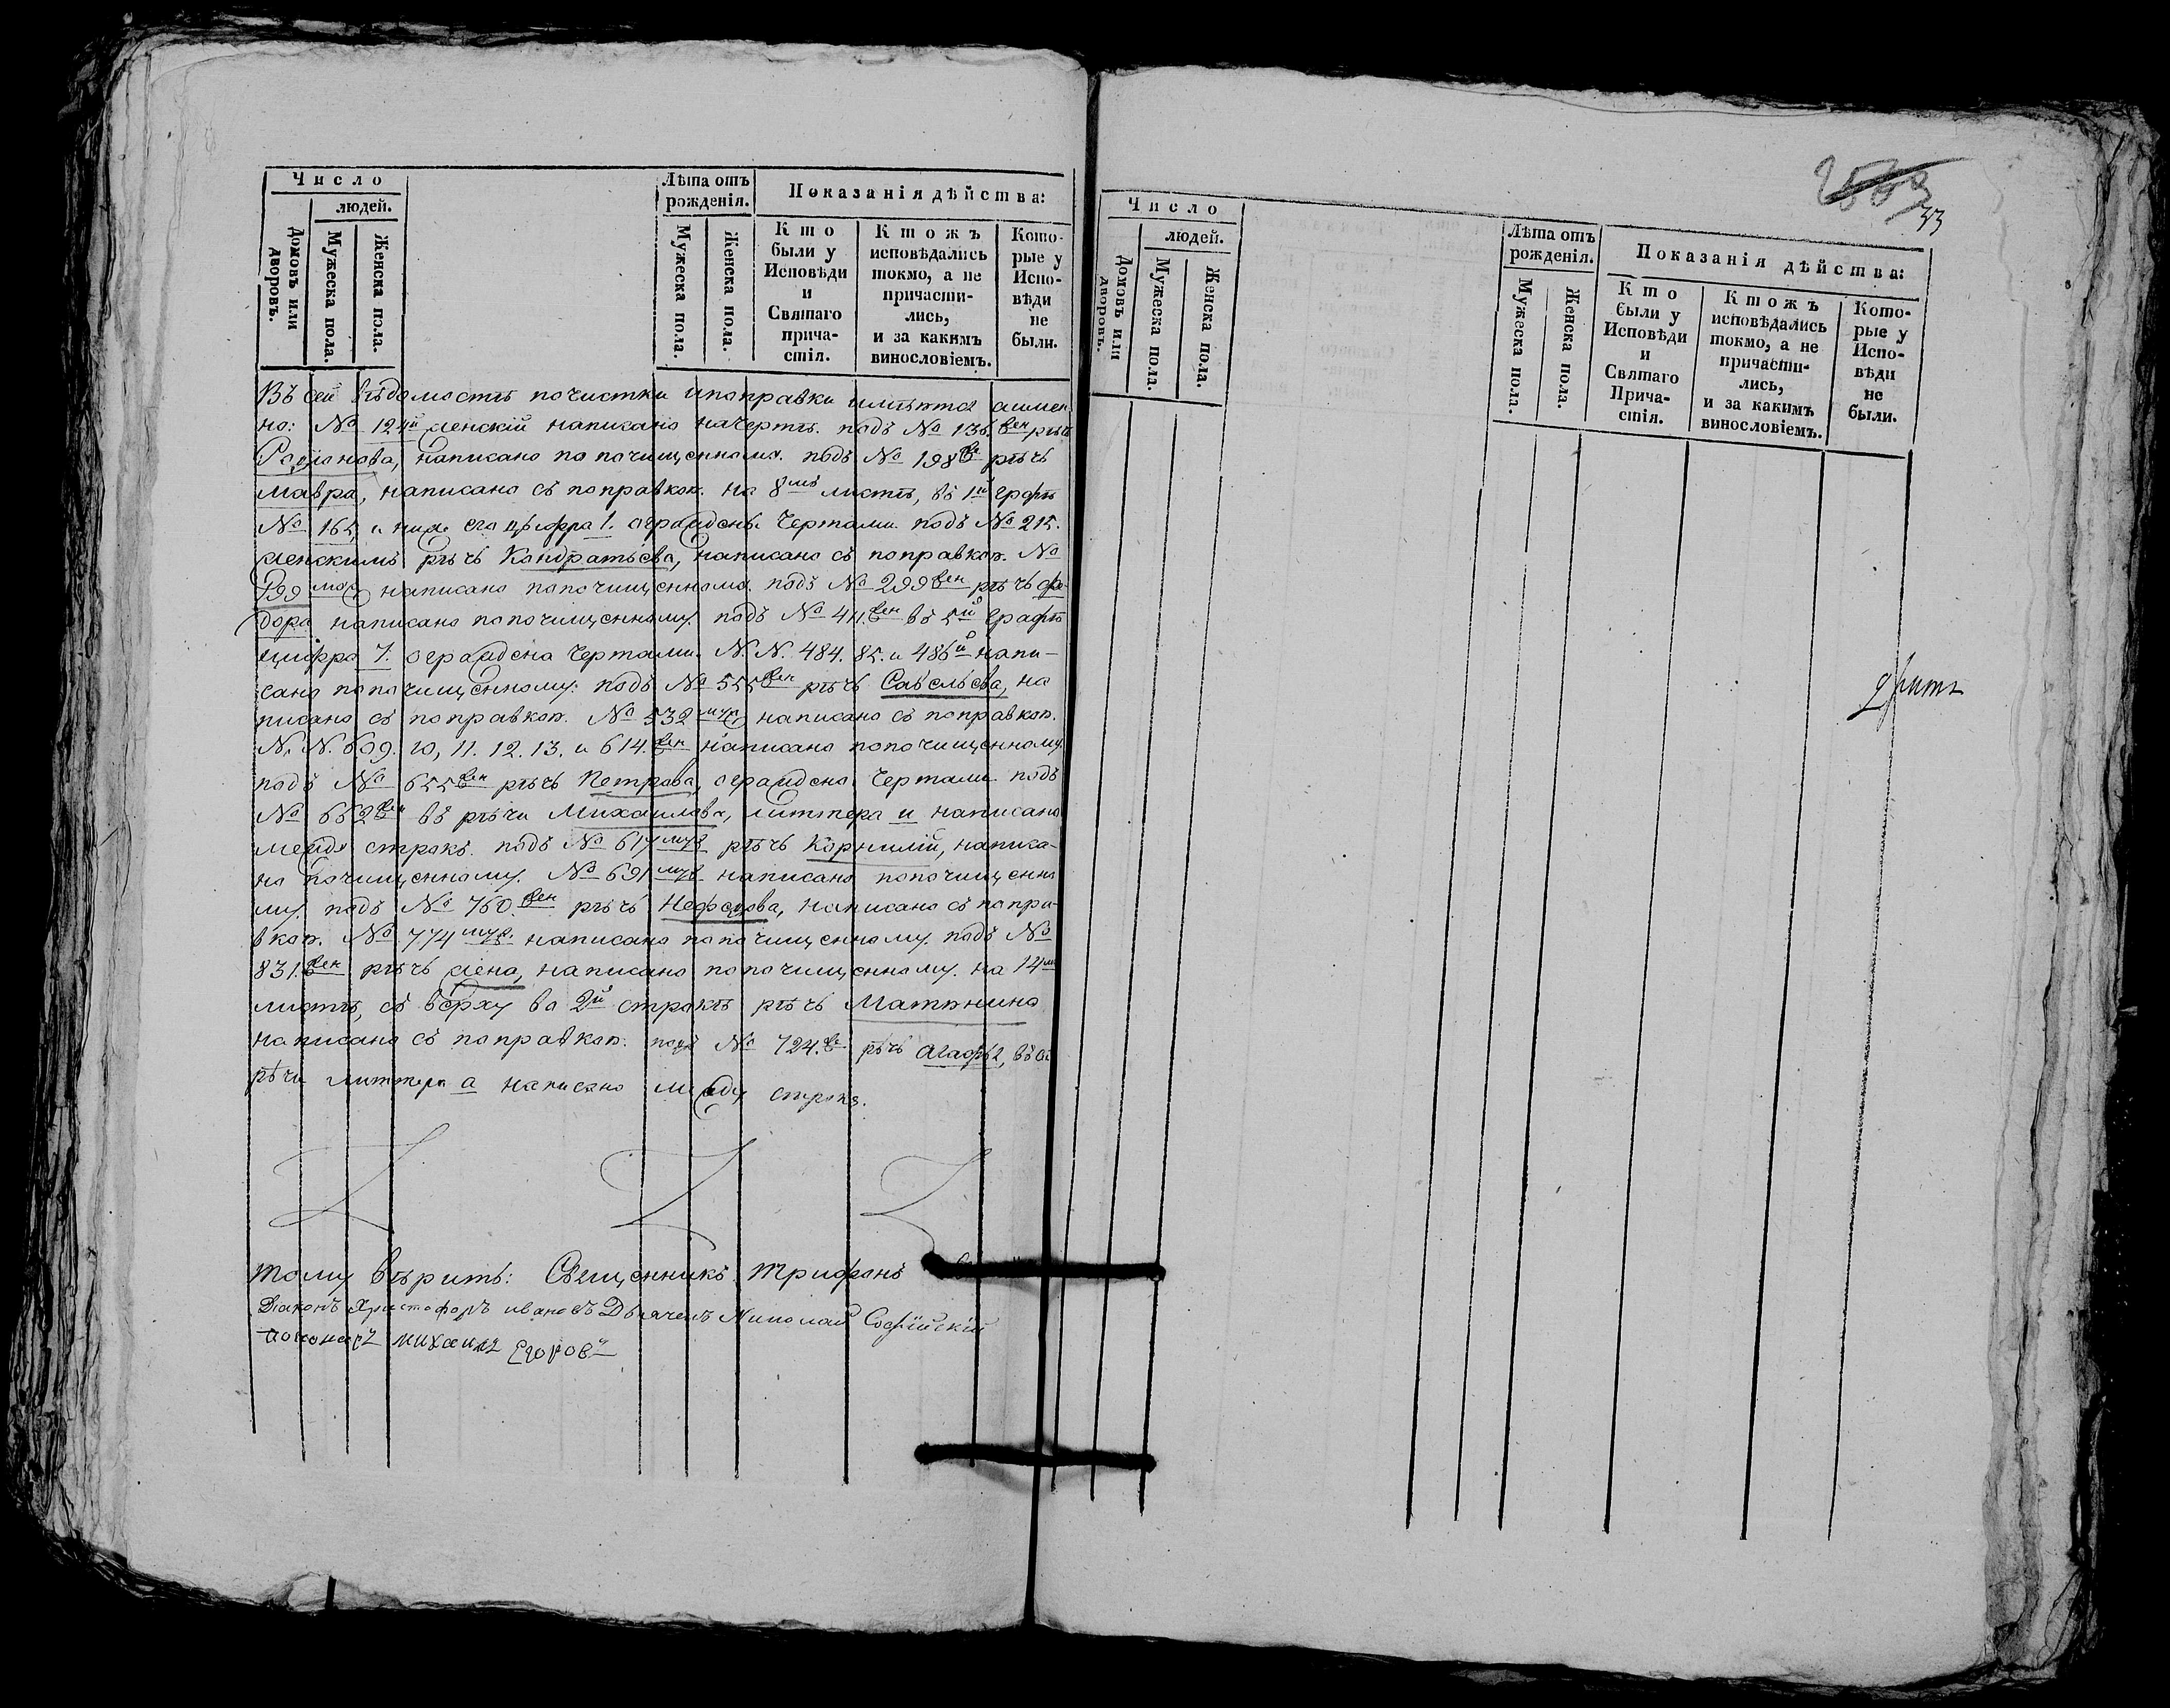 Число
людей.
Домовъ или дворовъ.
Мужеска пола.
Женска пола.
Лѣта отъ рожденія.
Мужеска пола.
Женска пола.
Показанія дѣйства:
Кто были у Исповѣди и Святаго прича-стія.
Ктожъ исповѣдались токмо, а не причасти-лись, и за какимъ винословіемъ.
Кото-рые у Испо-вѣди не были.
Въ сей вѣдомости почистки и поправки имѣются а имен
но: № 124й женскій написано на чертѣ. подъ № 136. жен рѣчь
Родіонова, написано по почищенному. подъ № 198 же рѣчь
Мавра, написано съ поправкою. на 8мъ листѣ, въ 1й графѣ
№ 165, и ниже его цифра 1. ограждены чертами. подъ № 215.
женскимъ рѣчь Кондратьева, написано съ поправкою. №
299 муж написано по почищенному. подъ № 299 жен рѣчь Фе-
дора написано по почищенному. подъ № 411. жен въ 5й графѣ
цифра 7. ограждена чертами. N. N. 484. 85. и 486й напи-
сано по почищенному: подъ № 555 жен рѣчь Савельева, на
писано съ поправкою. № 532 муж написано съ поправкою.
N. N. 609. 10, 11. 12. 13. и 614. жен написано по почищенному.
подъ № 655 жен рѣчь Петрова, ограждено чертами. подъ
№ 662 жен въ рѣчи Михаилова, литтера и написано
между строкъ. подъ № 617 муж рѣчь Корнилій, написа-
но почищенному. № 691 муж написано по почищенно
му. подъ № 760. жен рѣчь Нефедова, написано съ попра-
вкою. № 774 муж. написано по почищенному. подъ №
831. жен рѣчь жена, написано по почищенному. на 14м
листѣ, съ верху во 2й строкѣ рѣчь Матюнино
написано съ поправкою. подъ № 724. же рѣчь Агафья, въ ой
рѣчи литтера а написано между строкъ.
тому вѣритъ: Священникъ Трифонъ
Діаконъ Христофоръ Ивановъ Дьячекъ Николай Софійскій
пономарь Михаилъ Егоровъ
33
Число
людей.
Домовъ или дворовъ.
Мужеска пола.
Женска пола.
Лѣта отъ рожденія.
Мужеска пола.
Женска пола.
Показанія дѣйства:
Кто были у Исповѣди и Святаго Прича-стія.
Ктожъ исповѣдались токмо, а не причасти-лись, и за какимъ винословіемъ.
Кото-рые у Испо-вѣди не были.